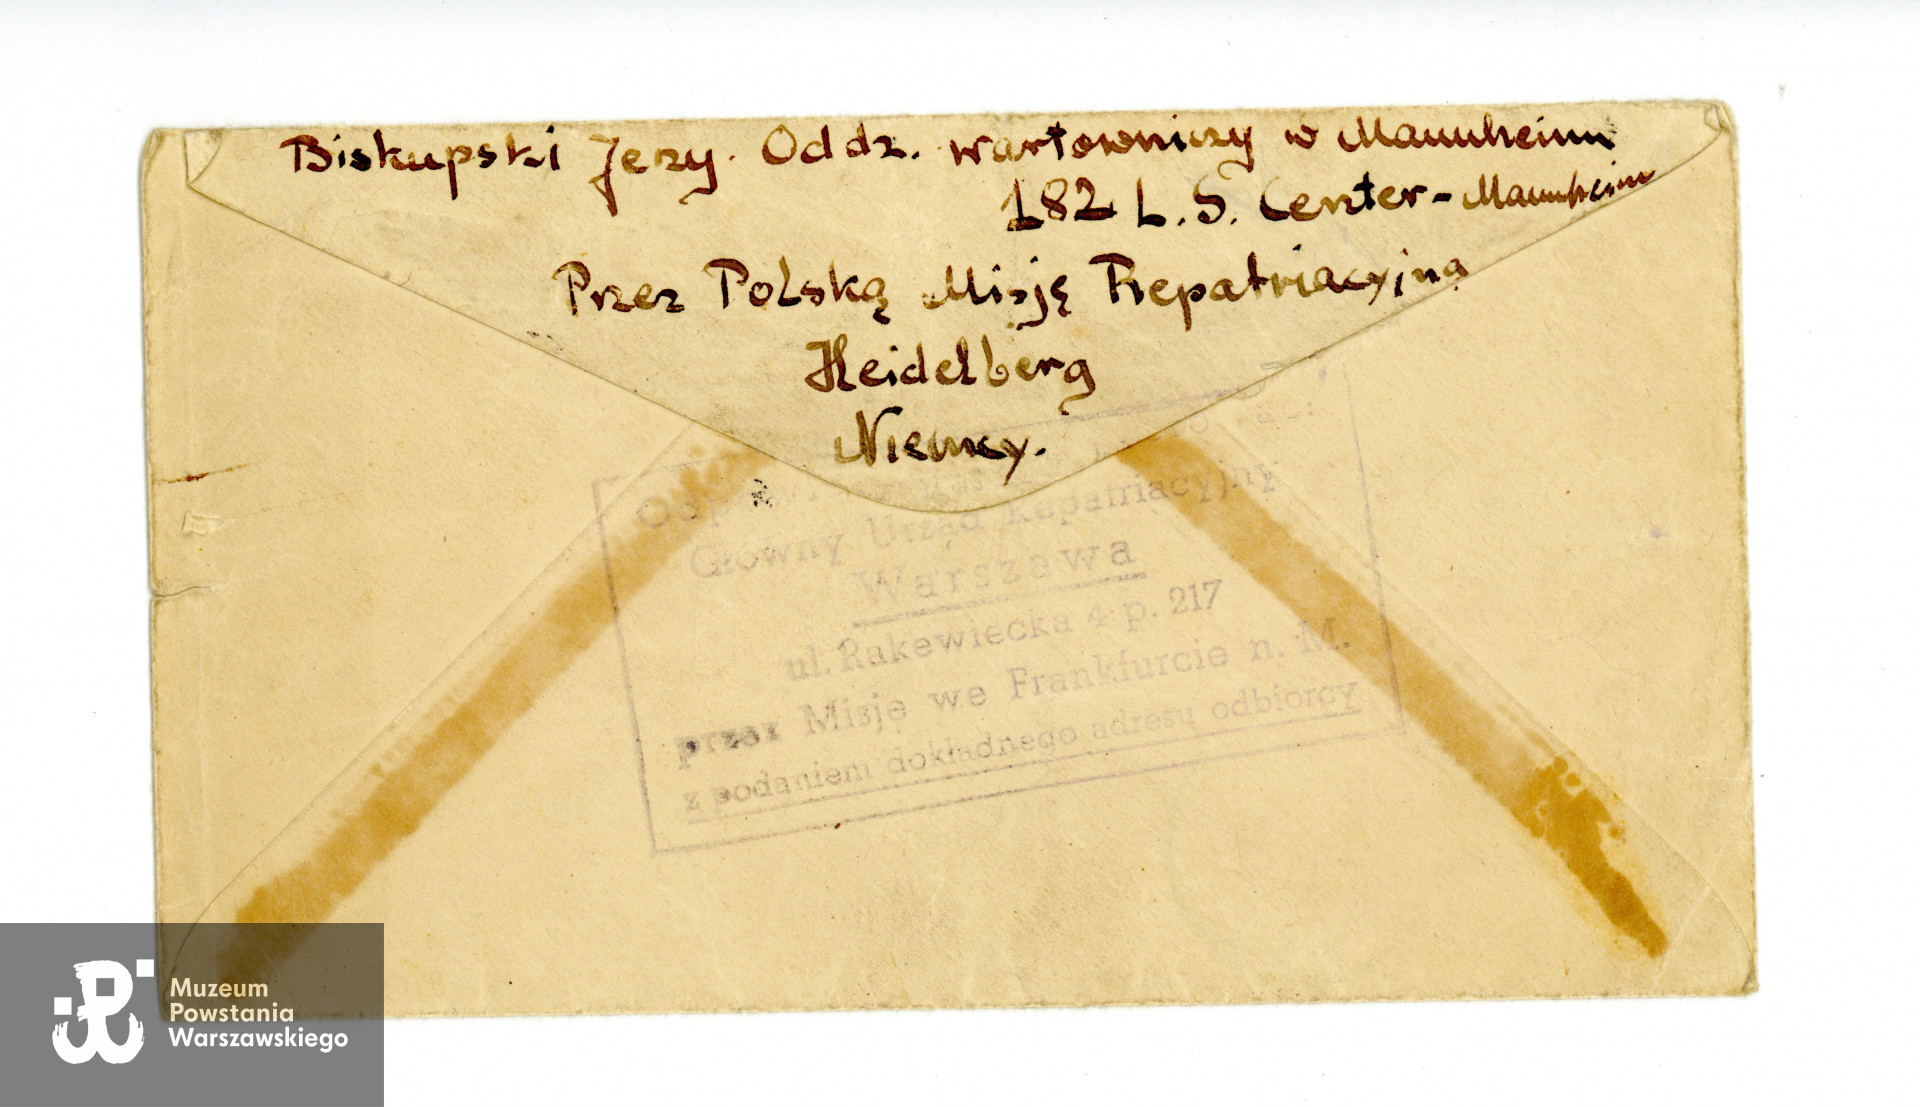 Biskupski Jerzy. Oddz. wartowniczy w Mannheim
182 L. S. Center - Mannheim
Przez Polską Misję Repatriacyjną
Heidelberg
Niemcy.
Główny Urząd Repatriacyjny
Warszawa
ul. Rakewiecka 4 p. 217
przez Misję we Frankfurcie n. M.
z podaniem dokładnego adresu odbiorcy
Muzeum
Powstania
Warszawskiego